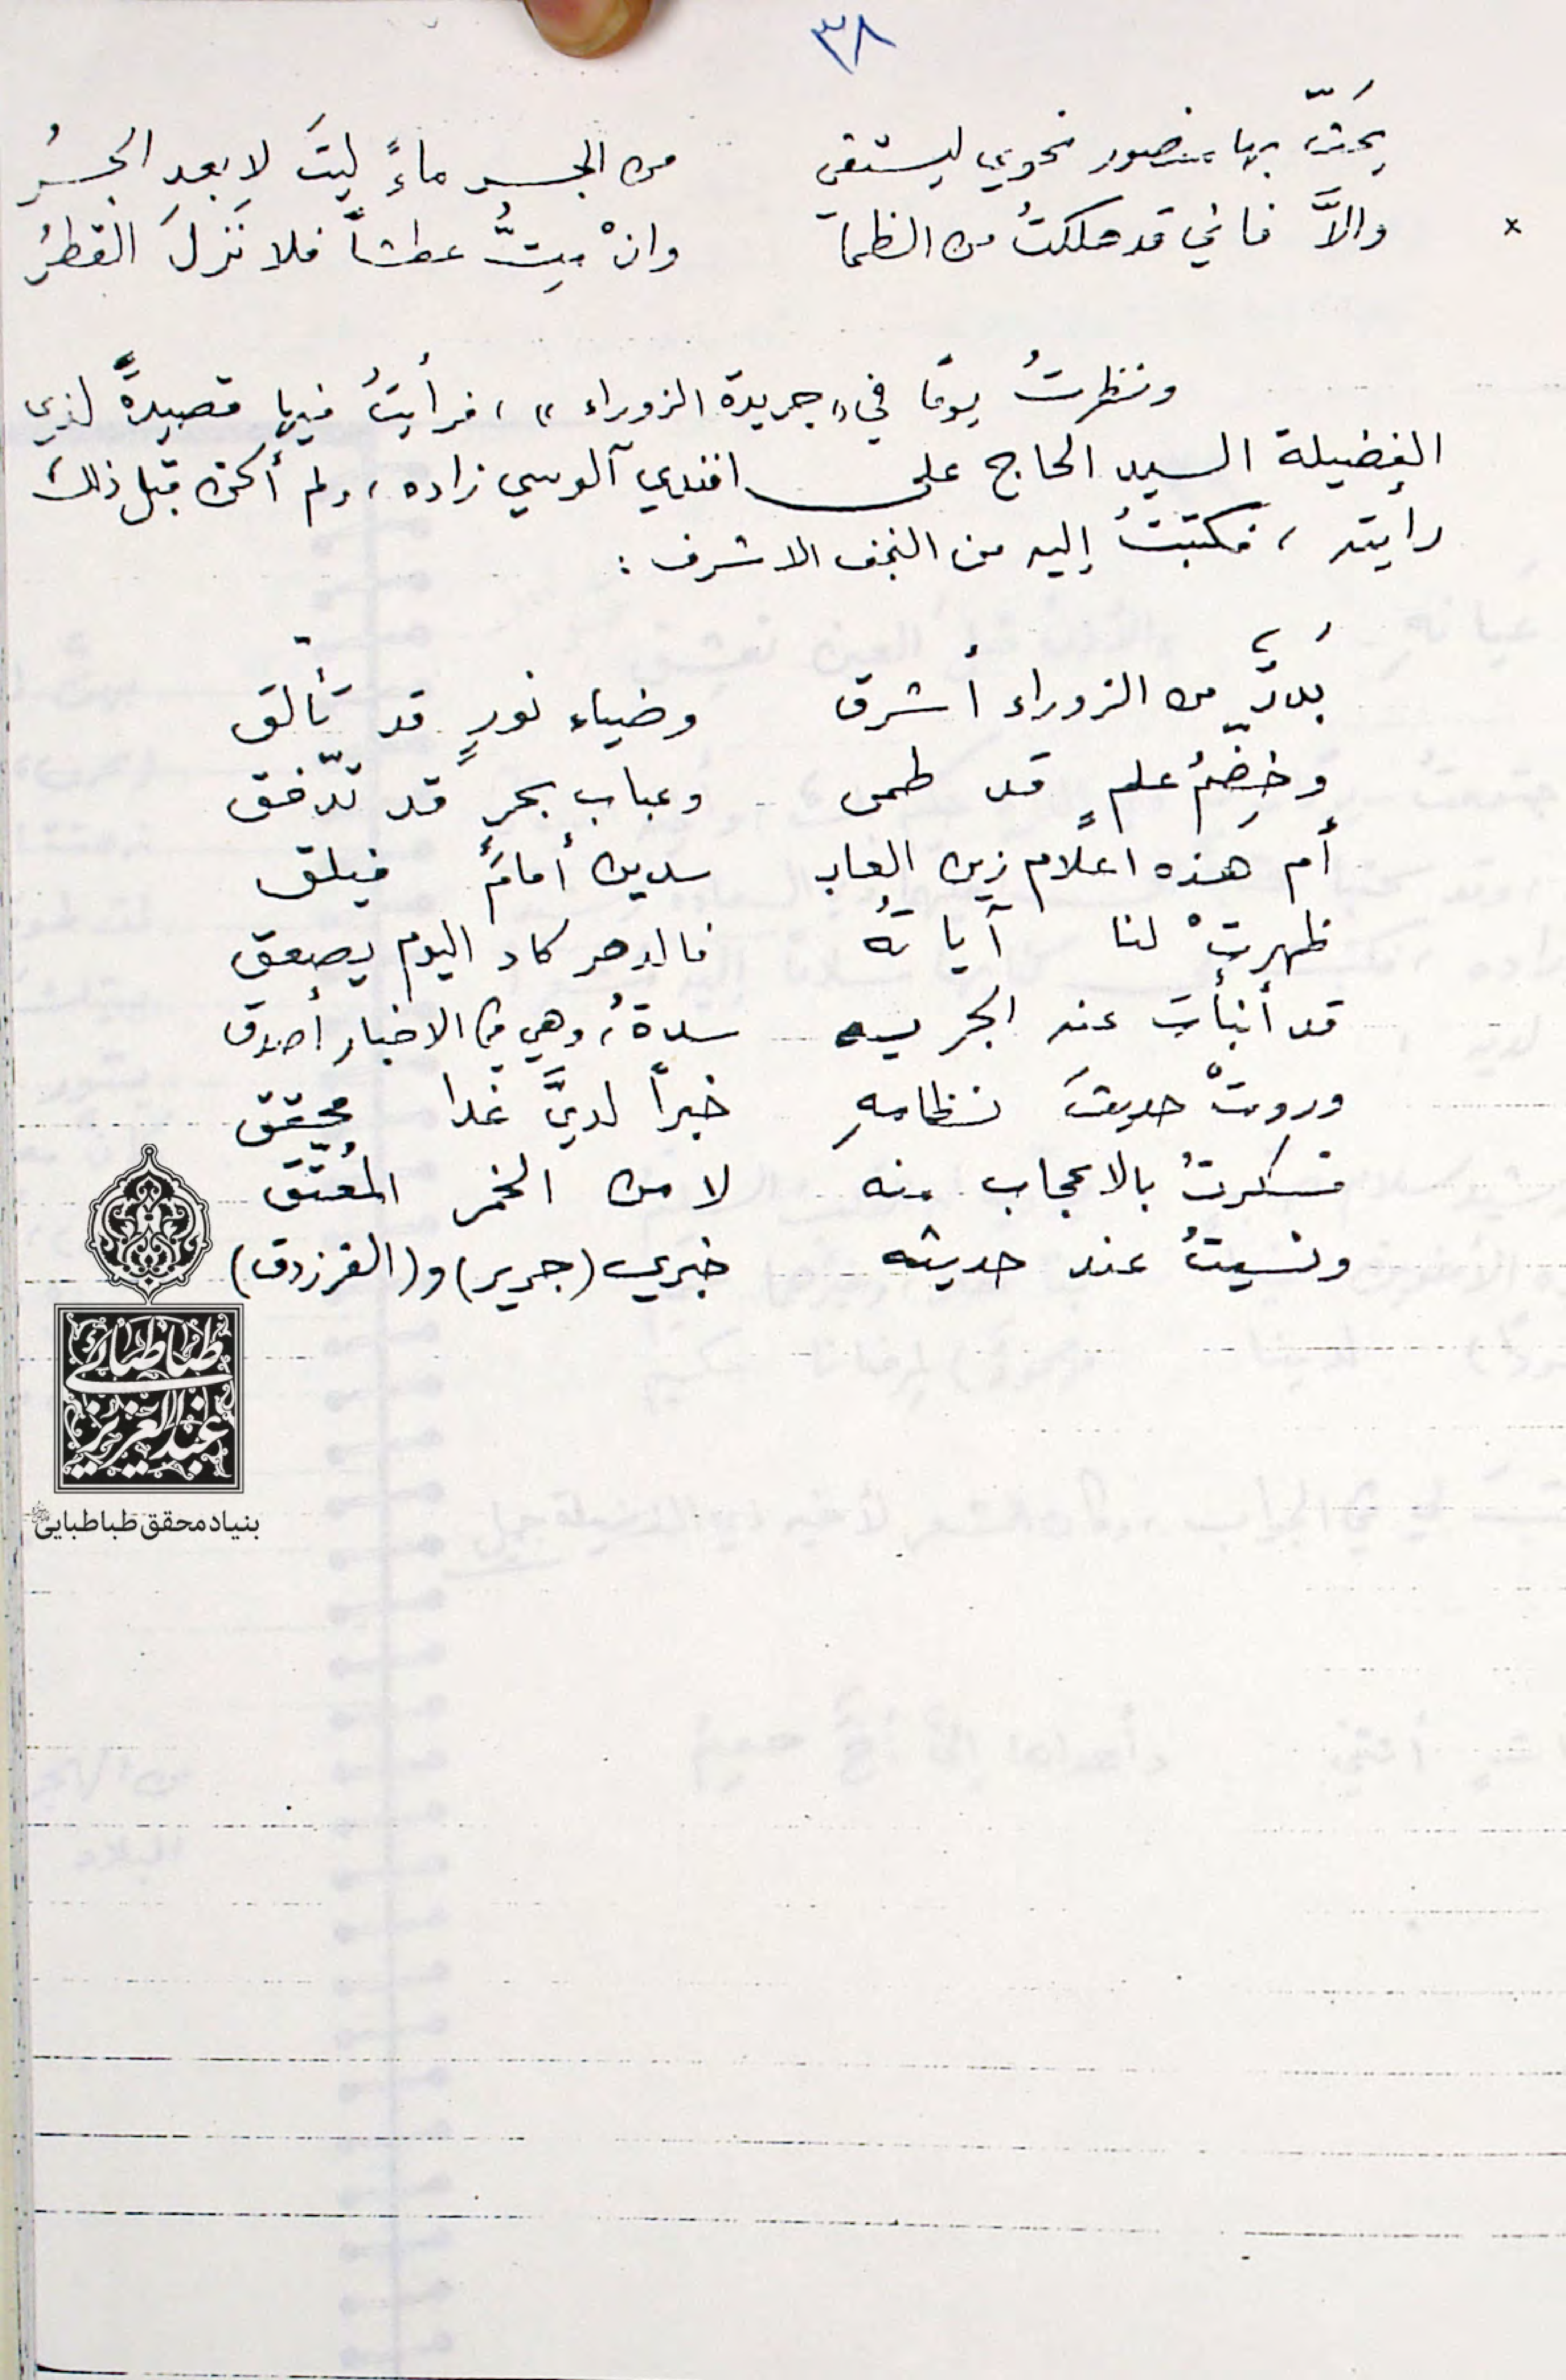 ٣٨
يَحثّ بها منصور نحوي ليستقي من الجسر ماءً ليتَ لا بعد الجسرُ
× والاَّ فاني قد هلكتُ من الظما وانْ مِتُّ عطشاً فلا نَزلَ القطرُ
ونظرتُ يومًا في «جريدة الزوراء» ، فرأيتُ فيها قصيدةً لذي
الفضيلة السيد الحاج علي افندي آلوسي زاده ، ولم أكن قبل ذلك
رايته ، فكتبتُ إليه من النجف الاشرف :
بُدلاَّ من الزوراء أشرق وضياء نورٍ قد تألّق
وخِضّمُ علمٍ قد طمى وعباب بحرٍ قد تدّفق
أم هذه اعلام زين العابـ ـدين أمامَ فيلق
ظهرتْ لنا آياتهُ فالدهر كاد اليوم يصعق
قد أنبأت عنه الجريـ ـدةُ ، وهي في الاخبار أصدق
وروتْ حديث نظامهِ خبراً لديَّ غدا محقّق
فسكرتُ بالاعجاب منه لا من الخمر المُعتّق
ونسيتُ عند حديثه خبري (جرير) و(الفرزدق)
طباطبائي
عبدالعزيز
بنیاد محقق طباطبایی